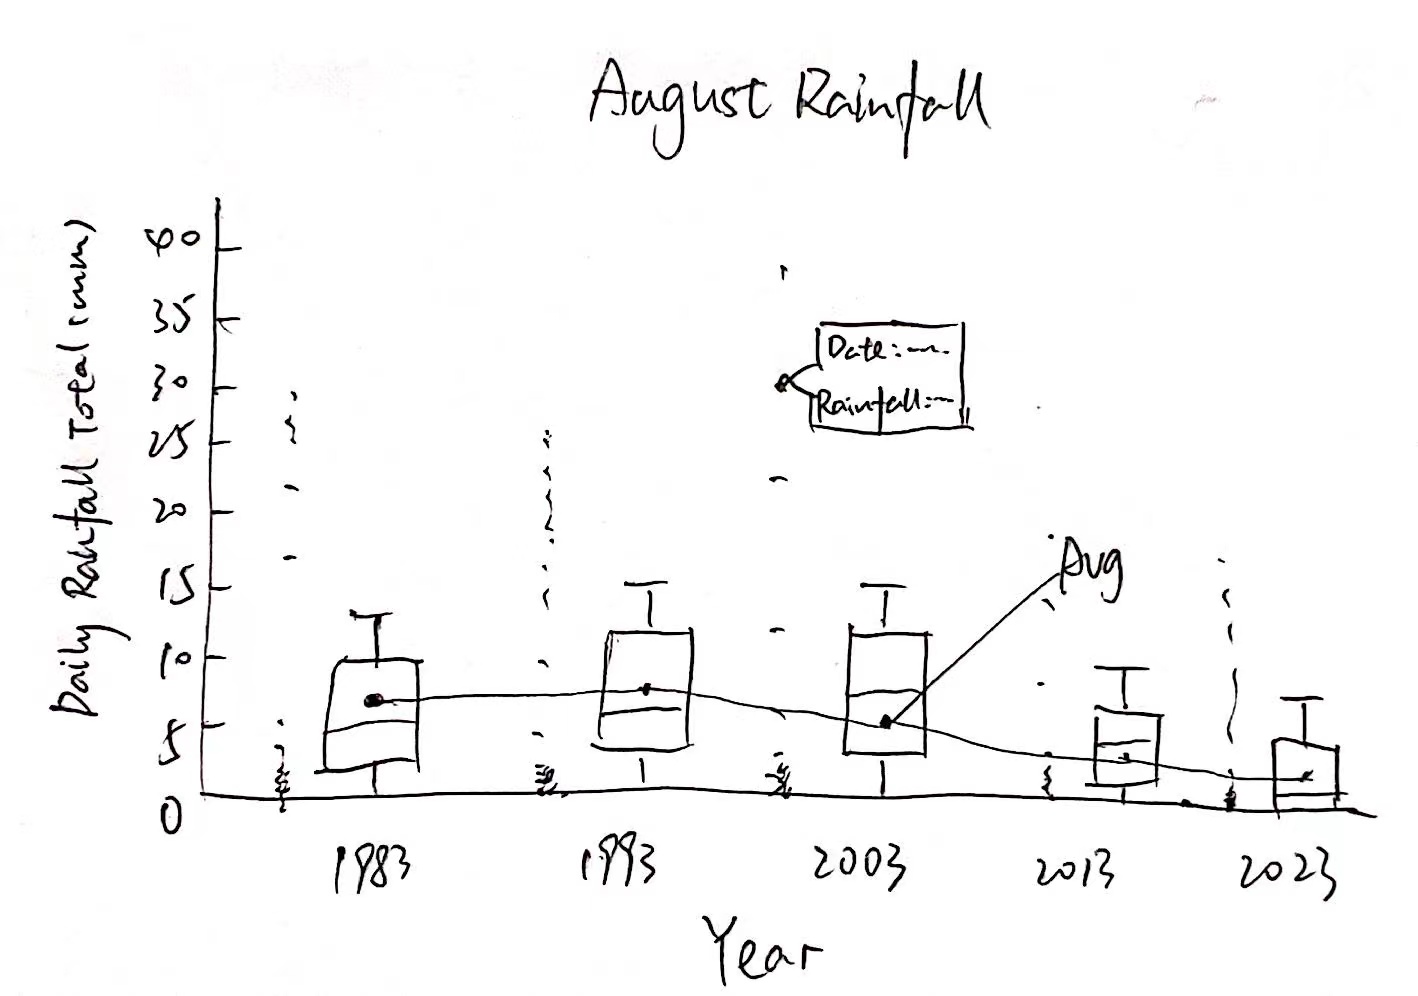 August Rainfall
Daily Rainfall Total (mm)
40
35
30
25
20
15
10
5
0
Date:
Rainfall:
Avg
1983
1993
2003
2013
2023
Year